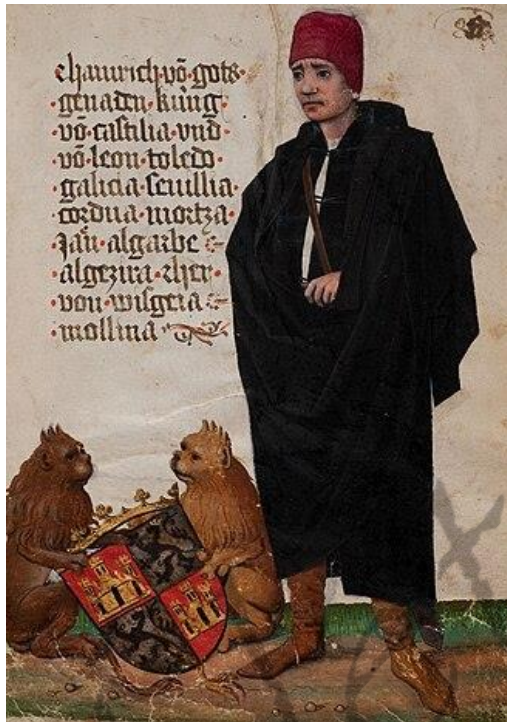 hainrich·vō·gots·
·genaden·küng·
·vō·castilia·vnd·
·vō·leon·toledo·
·galicia·seuillia·
·cordua·mortza·
·algarbe
·algezira·
·von·wisgeia
·mollina·